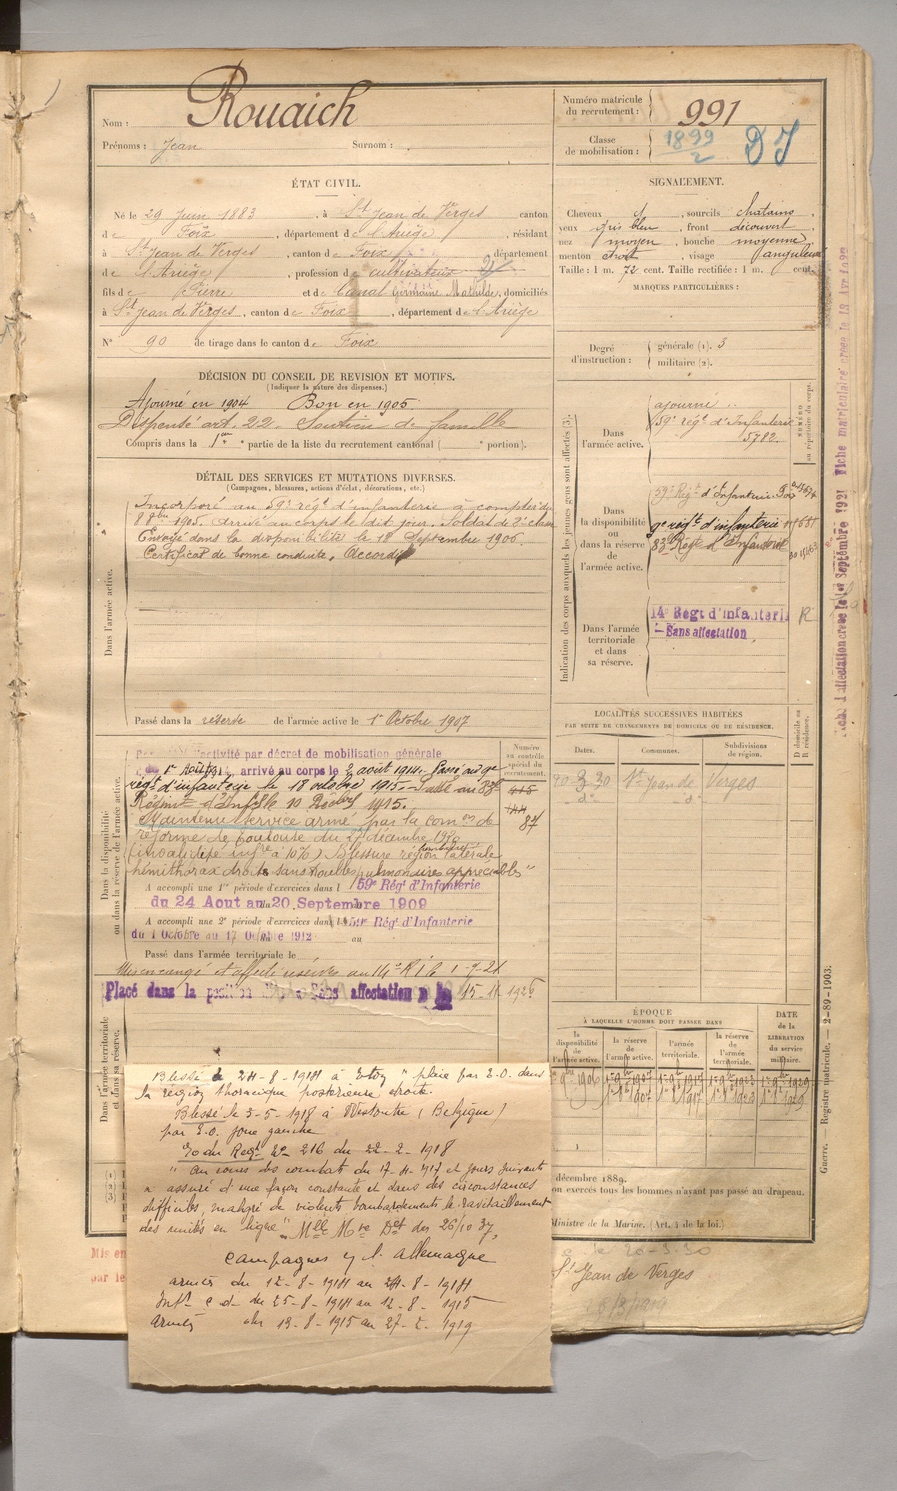 Nom : Rouaich
Prénoms : Jean Surnom : .
Numéro matricule du recrutement : 991
Classe de mobilisation : 1899/2 DJ
ÉTAT CIVIL.
Né le 29 Juin 1883, à St Jean de Verges canton
de Foix, département de l'Ariège, résidant
à St Jean de Verges, canton de Foix, département
de l'Ariège, profession de cultivateur
fils de Pierre et de Canal Germaine Mathilde, domiciliés
à St Jean de Verges, canton de Foix, département de l'Ariège
N° 90 de tirage dans le canton de Foix
SIGNALEMENT.
Cheveux d, sourcils chatains,
yeux gris bleu, front découvert,
nez moyen, bouche moyenne,
menton droit, visage anguleux
Taille : 1 m. 72 cent. Taille rectifiée : 1 m. cent.
MARQUES PARTICULIÈRES :
Degré d'instruction : générale (1). 3
militaire (2).
DÉCISION DU CONSEIL DE REVISION ET MOTIFS.
(Indiquer la nature des dispenses.)
Ajourné en 1904 Bon en 1905.
Dispensé art. 22. Soutien de famille
Compris dans la 1re partie de la liste du recrutement cantonal ( portion).
DÉTAIL DES SERVICES ET MUTATIONS DIVERSES.
(Campagnes, blessures, actions d'éclat, décorations, etc.)
Dans l'armée active.
Incorporé au 59e régt d'infanterie à compter du
8 8bre 1905. Arrivé au corps le dit jour, Soldat de 2e classe
Envoyé dans la disponibilité le 18 Septembre 1906.
Certificat de bonne conduite, Accordé
Passé dans la réserve de l'armée active le 1er Octobre 1907
Indication des corps auxquels les jeunes gens sont affectés (3).
NUMÉRO au répertoire du corps.
Dans l'armée active.
ajourné
59e régt d'Infanterie
5782
Dans la disponibilité ou dans la réserve de l'armée active.
59e Régt d'Infanterie
9e régt d'infanterie
83e Régt d'Infanterie
Dans l'armée territoriale et dans sa réserve.
14e Regt d'Infanterie R
Sans affectation
LOCALITÉS SUCCESSIVES HABITÉES
PAR SUITE DE CHANGEMENTS DE DOMICILE OU DE RÉSIDENCE.
Dates. Communes. Subdivisions de région. D domicile ou R résidence.
20-3-30 St Jean de Verges
do do
Dans la disponibilité ou dans la réserve de l'armée active.
Numéro au contrôle spécial du recrutement.
activité par décret de mobilisation générale
du 1er Août 1914, arrivé au corps le 2 août 1914. Passé au 9e
régt d'infanterie le 18 octobre 1915. Passé au 83e
Régiment d'Infie le 10 1915.
Maintenu service armé par la comon de
réforme de Toulouse du 27 décembre 1920
(invalidité infre à 10%) Blessure région latérale
hémithorax droit sans troubles pulmonaires appréciables"
415
144
87
A accompli une 1re période d'exercices dans l 59e Rég' d'Infanterie
du 24 Aout au 20 Septembre 1909
A accompli une 2e période d'exercices dans l 59e Rég' d'Infanterie
du 1 Octobre au 17 Octobre 1912 au
Passé dans l'armée territoriale le
Dans l'armée territoriale et dans sa réserve.
affecté réserve au 14e R.I. le 1-7-21
Placé dans la position Sans affectation 15-11 1926
ÉPOQUE
À LAQUELLE L'HOMME DOIT PASSER DANS
DATE de la LIBÉRATION du service militaire.
la disponibilité de l'armée active. la réserve de l'armée active. l'armée territoriale. la réserve de l'armée territoriale.
Blessé le 24-8-1914 à Etoy " plaie par E.O. dans
la région thoracique postérieure droite.
Blessé le 3-5-1918 à Westoutre (Belgique)
par E.O. joue gauche
O du Regt No 216 du 22-2-1918
" Au cours des combats du 17-11-1917 et jours suivants
a assuré d'une façon constante et dans des circonstances
difficiles, malgré de violents bombardements le ravitaillement
des unités en ligne" Mlle Mre Det du 26/10 37,
Campagnes c/ l'Allemagne
armées du 12-8-1914 au 24-8-1914
Intr c d- du 25-8-1914 au 12-8-1915
Armées du 13-8-1915 au 27-2-1919
décembre 1889.
on exercés tous les hommes n'ayant pas passé au drapeau.
Ministre de la Marine. (Art. 4 de la loi.)
le 20-3-30
St Jean de Verges
Mis en
par le
Guerre. — Registre matricule. — 2-89-1903.